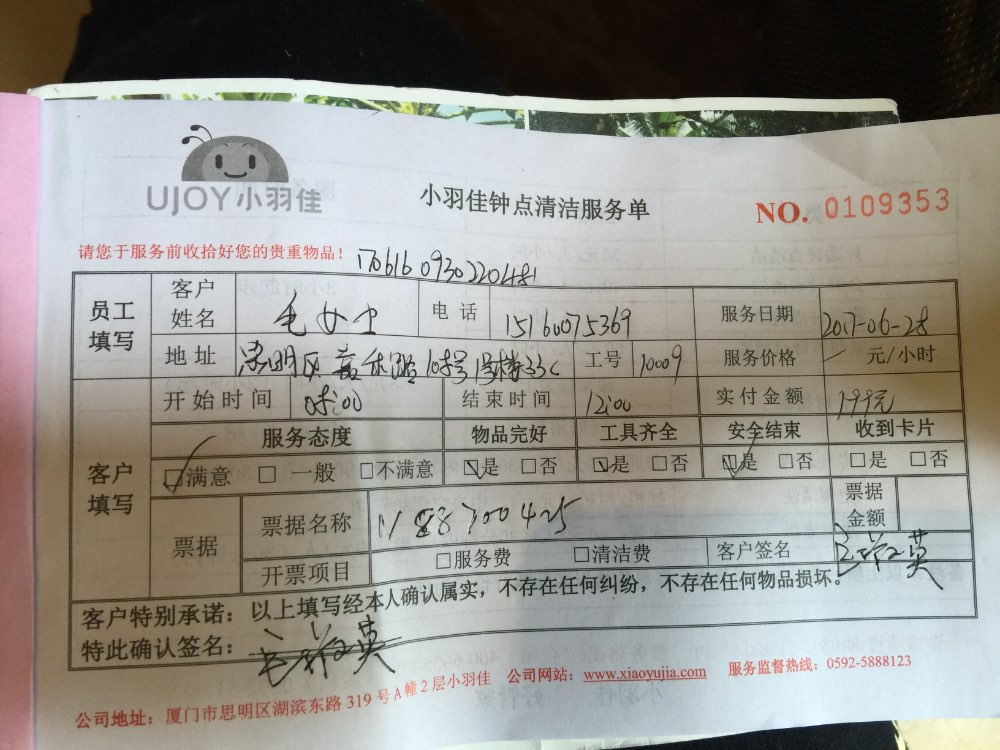 UJOY小羽佳
小羽佳钟点清洁服务单
NO. 0109353
请您于服务前收拾好您的贵重物品！
1706160930220481
员工填写 客户姓名 毛女士 电话 15160075369 服务日期 2017-06-28
地址 思明区 嘉禾路 工号 10009 服务价格 元/小时
开始时间 结束时间 12:00 实付金额 199元
客户填写 服务态度 物品完好 工具齐全 安全结束 收到卡片
□满意 □一般 □不满意 □是 □否 □是 □否 □是 □否 □是 □否
票据 票据名称 票据金额
开票项目 □服务费 □清洁费 客户签名
客户特别承诺：以上填写经本人确认属实，不存在任何纠纷，不存在任何物品损坏。
特此确认签名：
公司地址：厦门市思明区湖滨东路319号A幢2层小羽佳 公司网站：www.xiaoyujia.com 服务监督热线：0592-5888123